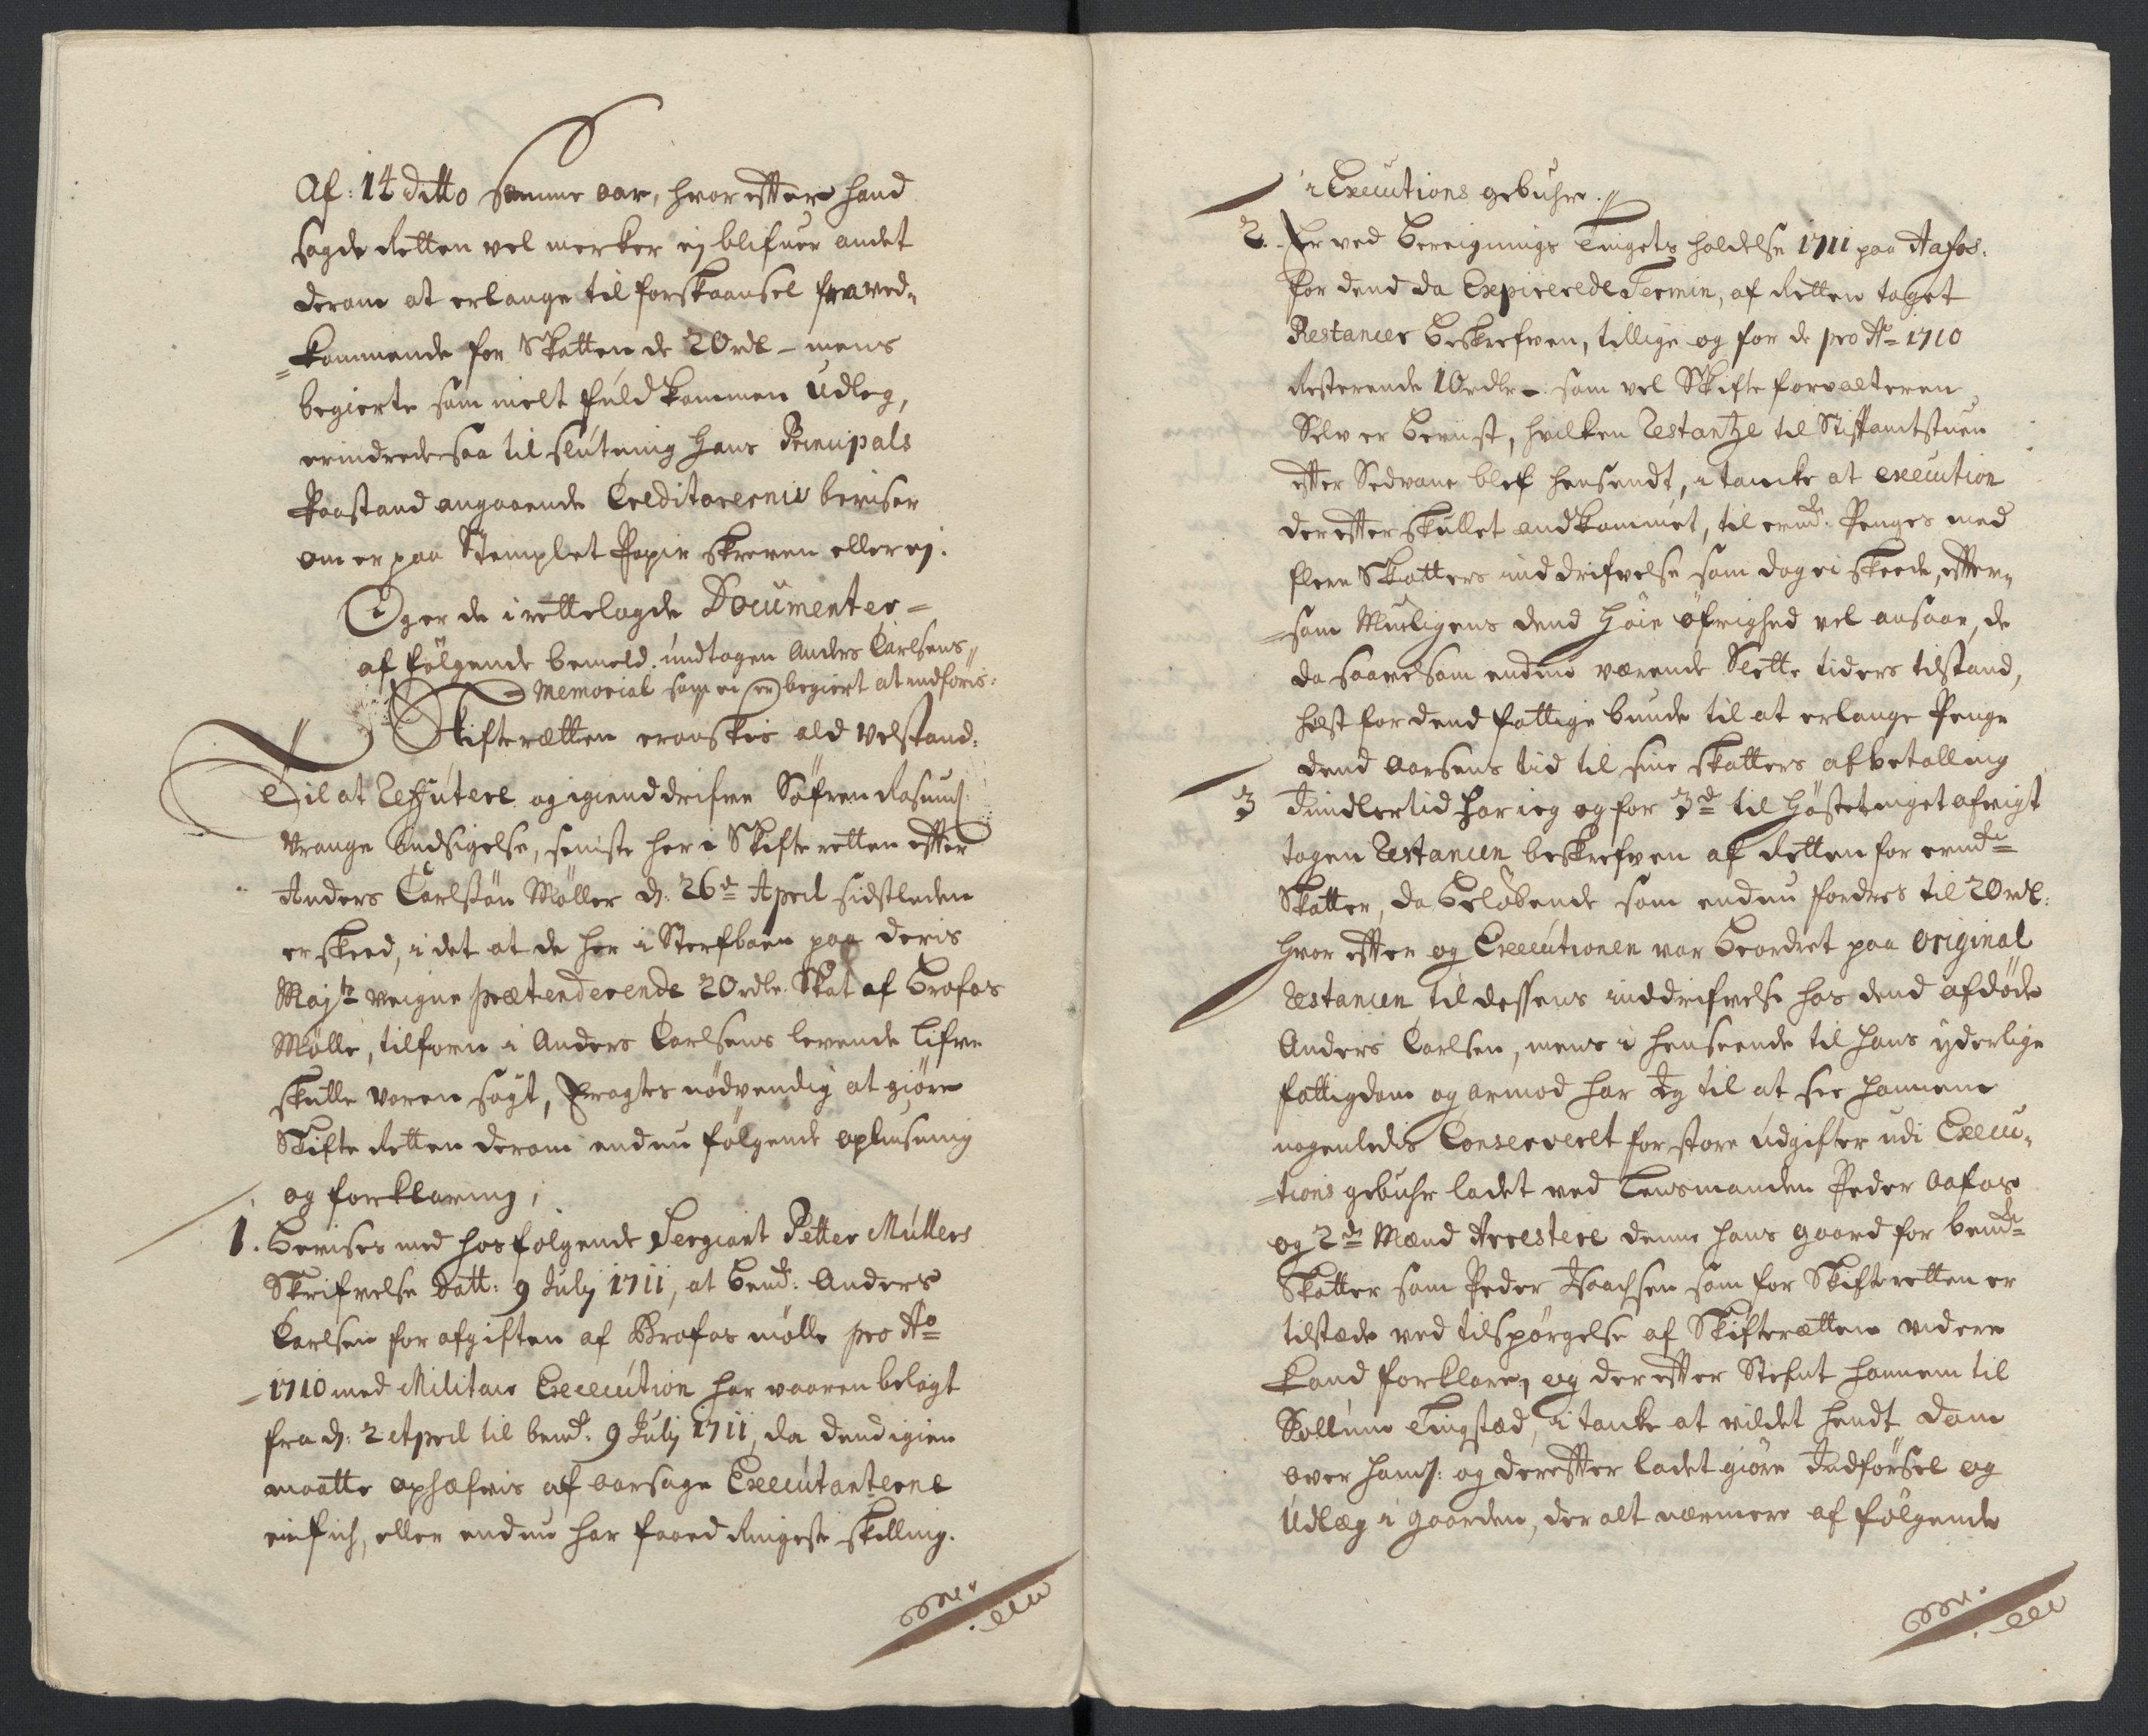 Af: 14 ditto samme aar, hvor efter hand
sagde Retten vel merker ej blifuer andet
derom at erlange til forskaansel fra ved-
=kommende for Skatten de 20 rdl – mens
begierte som melt fuldkommen Udleg,
erindrede saa til slutning hans Principals
Paastand angaaende Creditorernis beviser
om er paa Stemplet Papir skreven eller ej.
Og er de i rettelagde Documenter =
af følgende bemeld. undtagen Anders Carlsens
Memorial som ei er begiert at indføris:
Skifteretten erønskis ald Velstand:
Til at Refutere og igienddrifve Søfren Rasmus:
Vrange Indsigelse, seniste her i Skifteretten efter
Anders Carlsøn Møller d: 26de April sidstleden
er skeed, i det at de her i Sterfboen paa deris
Majts veigne prætenderende 20 rdlr. Skat af Brofos
Mølle, tilforn i Anders Carlsens levende Lifve
skulle voren søgt, Eragtes nødvendig at giøre
Skifte Retten derom endnu følgende oplusning
og forklaring,
1. Bevises med hosfølgende Sergiant Petter Müllers
Skrifvelse Datt: 9 July 1711, at bemd: Anders
Carlsen for afgiften af Brofos mølle pro Ao
1710 med Militair Execution har vaaren belagt
fra d: 2 April til bemd: 9 July 1711, da dend igien
maatte ophæfvis af aarsage Executanterne
ei fich, eller endnu har faaed Ringeste skilling.
i Executions gebuhr.
2. Er ved Bereignings Tingets holdelse 1711 paa Aafos.
for dend da Expirerede Termin, af Retten taget
Restancer beskrefven, tillige og for de pro Ao 1710
Resterende 10 rdlr – som vel Skifteforvalteren
Selv er bevust, hvilken Restantze til Stiftamtstuen
efter Sedvane blef hensendt, i tancke at execution
der efter skullet andkommet, til ermd: Penges med
flere Skatters inddrifvelse som dog ei skeede, efter-
=som Muligens dend høie øfrighed vel ansaae, de
da saavelsom endnu værende Slette tiders tilstand,
helst for dend fattige bunde til at erlange Penge
dend aarsens tid til sine skatters afbetalling
3 Imidlertid har ieg og for 3de til høstetinget afvigt
tagen Restancen beskrefven af Retten for ermdte
Skatter, da beløbende som endnu fordres til 20 rdl:
hvor efter og Executionen var beordret paa Original
Restancen til dessens inddrifvelse hos dend afdøde
Anders Carlsen, mens i henseende til hans yderlige
fattigdom og armod har Jeg til at see hannem
nogenledis Conserverlt for store udgifter udi Execu-
=tions gebuhr ladet ved Lensmanden Peder Aafos
og 2de Mænd Arrestere denne hans gaard for bemdte
Skatter som Peder Isachsen som for Skifteretten er
tilstæde ved tilspørgelse af Skifteretten videre
kand forklare, og der efter Stefnt hannem til
Sollum Tingstæd, i tanke at vildet hendt dom
over ham: og derefter ladet giøre Indførsel og
Udlæg i gaarden, der alt nærmere af følgende